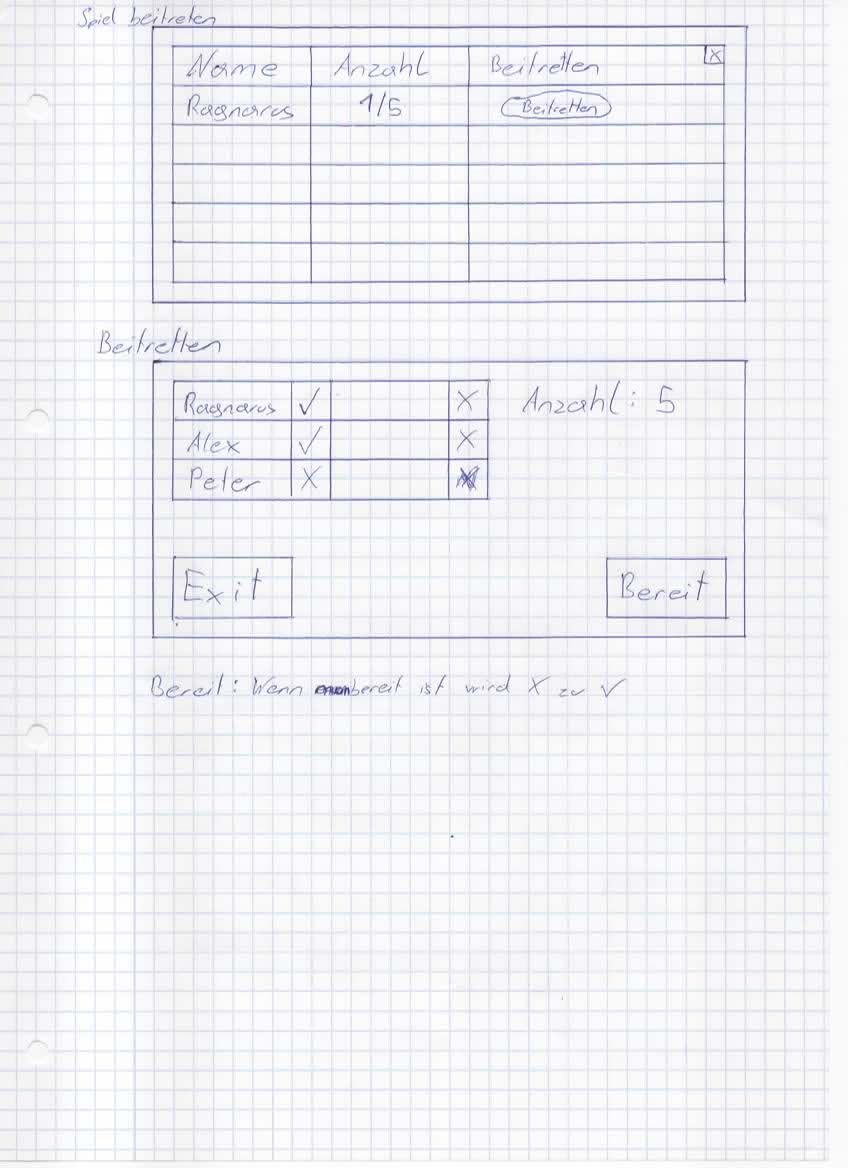 Spiel beitreten
Name Anzahl Beitretten X
Ragnarus 1/5 Beitretten
Beitretten
Ragnarus ✓ X Anzahl: 5
Alex ✓ X
Peter X X
Exit Bereit
Bereit: Wenn bereit ist wird X zu ✓